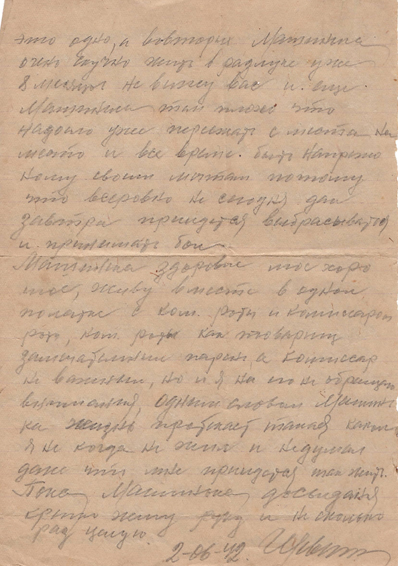 это одно, а вовторых Машинька
очень скучно жить в разлуке уже
8 месяцев не вижу вас и еще
Машинька там плохо что
надоело уже переежать с места на
место и все время быть
своим мыслям потому
что всеровно не сегодня дак
завтра прийдется выбрасыватся
и принемать бои.
Машинька здоровье мое хоро
шое, живу вместе в одной
палатке с ком. роты и комиссаром
роты, ком. роты как товарищ
замечательный парень а комиссар
не важный, но и я на его не обращаю
внимания, одним словом Машинь
ка жизнь протекает такая какой
я не когда не жил и не думал
даже что мне прийдется так жить.
Пока Машинька досвидания
крепко жму руку и несколько
раз целую.
2-06-42